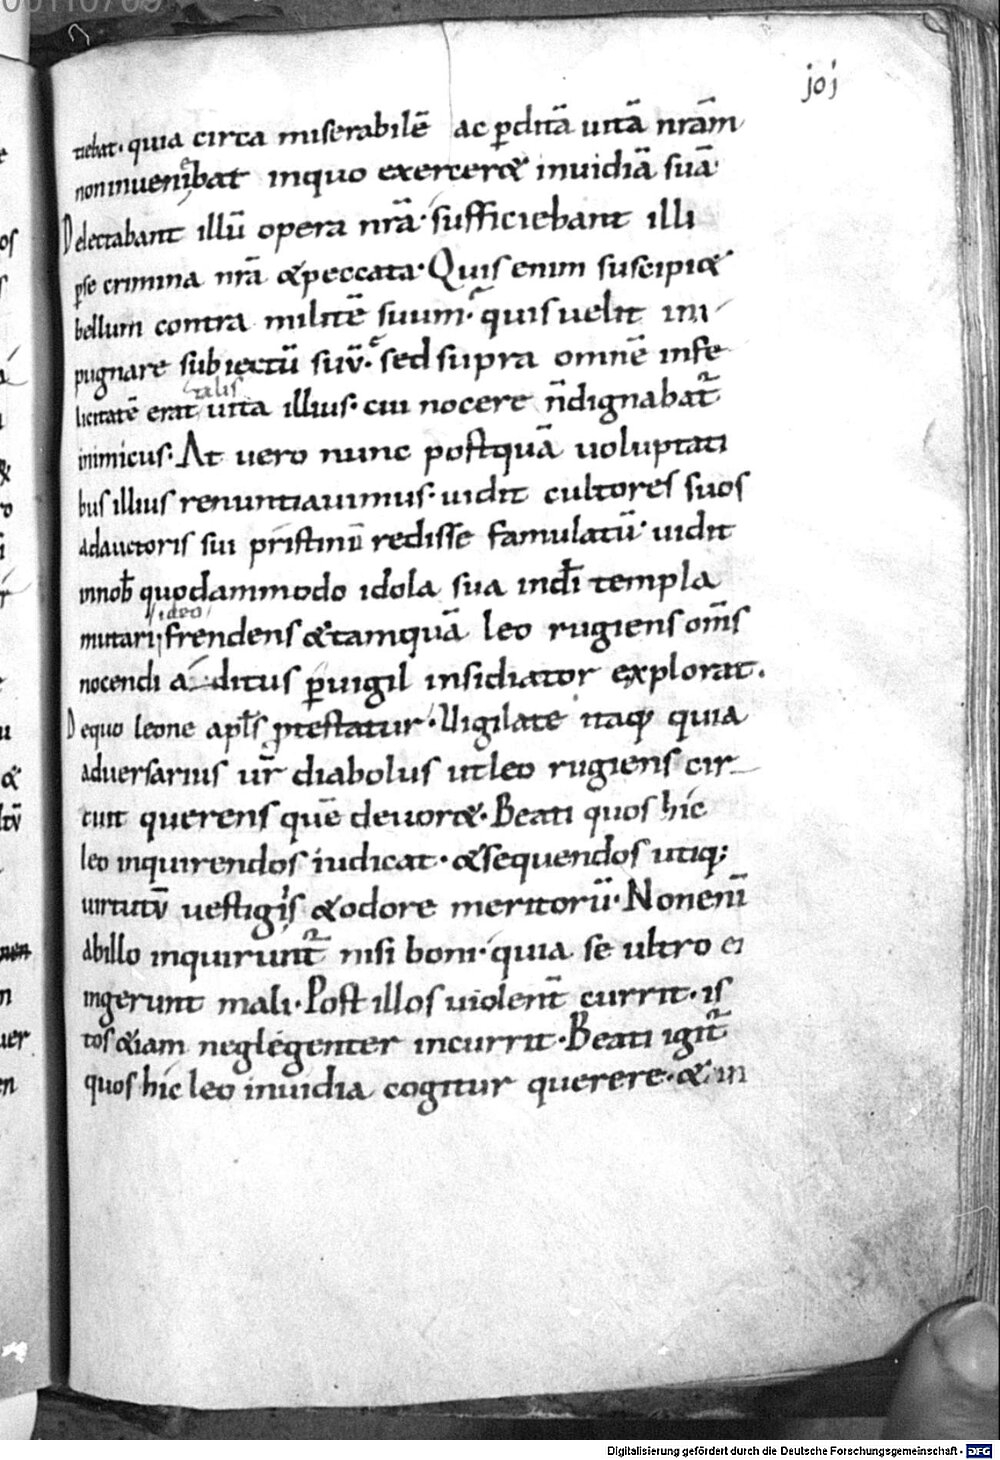 joj
tiebat· quia circa miserabilē ac pditā uitā nrām
non inueniebat inquo exercer& inuidiā suā·
Delectabant illū opera nrā· sufficiebant illi
pse crimina nrā &peccata· Quis enim suscipi&
bellum contra militē suum· quis uelit im
pugnare subiectū suū· sed supra omnē infe
licitatē erat talis uita illius· cui nocere ñdignabat
inimicus· At uero nunc postquā uoluptati
bus illius renuntiauimus· uidit cultores suos
adauctoris sui pristinū redisse famulatū· uidit
innob quodammodo idola sua indī templa
mutari; ideo frendens &tamquā leo rugiens oms
nocendi aditus puigil insidiator explorat.
Dequo leone apls ptestatur· Uigilate itaq quia
aduersarius ur diabolus utleo rugiens cir
cuit querens quē deuor&· Beati quos hic
leo inquirendos iudicat· &sequendos utiq;
uirtutū uestigiis &odore meritorū· Nonenī
abillo inquirunt nisi boni· quia se ultro ei
ingerunt mali· Post illos uiolent currit· is
tos &iam neglegenter incurrit· Beati igit
quos hic leo inuidia cogitur querere· & in
Digitalisierung gefördert durch die Deutsche Forschungsgemeinschaft - DFG